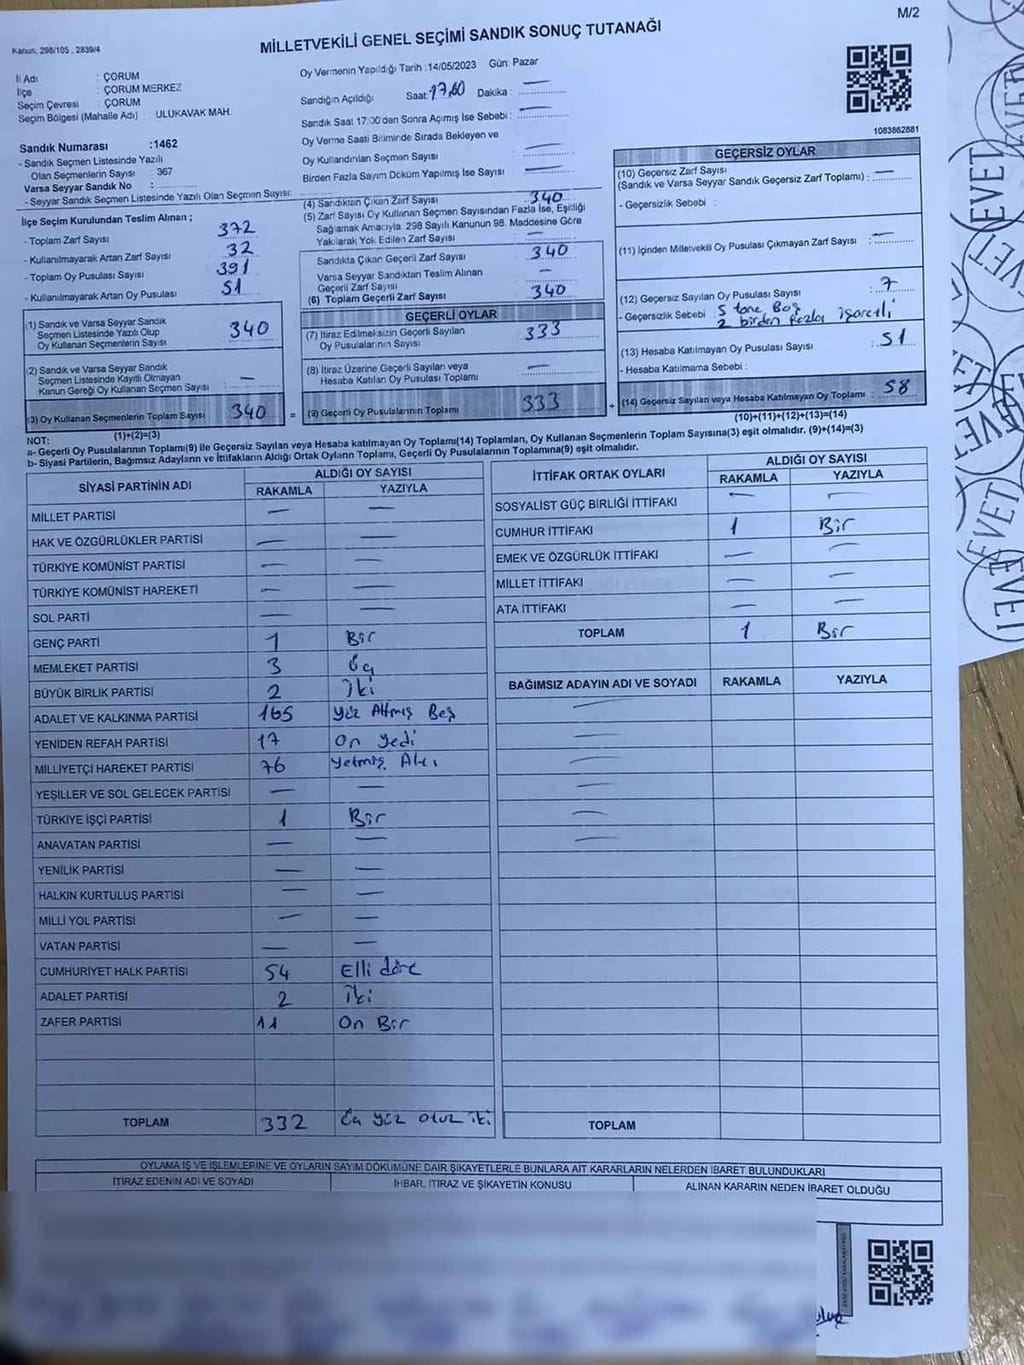 M/2
Kanun, 298/105 , 2839/4
MİLLETVEKİLİ GENEL SEÇİMİ SANDIK SONUÇ TUTANAĞI
İl Adı : ÇORUM
İlçe : ÇORUM MERKEZ
Seçim Çevresi : ÇORUM
Seçim Bölgesi (Mahalle Adı) : ULUKAVAK MAH.
Sandık Numarası :1462
- Sandık Seçmen Listesinde Yazılı
Olan Seçmenlerin Sayısı : 367
Varsa Seyyar Sandık No :
- Seyyar Sandık Seçmen Listesinde Yazılı Olan Seçmen Sayısı:
Oy Vermenin Yapıldığı Tarih :14/05/2023 Gün: Pazar
Sandığın Açıldığı Saat: 17,00 Dakika : —
Sandık Saat 17:00'den Sonra Açımış İse Sebebi : —
Oy Verme Saati Bitiminde Sırada Bekleyen ve
Oy Kullandırılan Seçmen Sayısı —
Birden Fazla Sayım Döküm Yapılmış İse Sayısı : —
1083862881
İlçe Seçim Kurulundan Teslim Alınan ;
- Toplam Zarf Sayısı : 372
- Kullanılmayarak Artan Zarf Sayısı : 32
- Toplam Oy Pusulası Sayısı : 391
- Kullanılmayarak Artan Oy Pusulası : 51
(1) Sandık ve Varsa Seyyar Sandık
Seçmen Listesinde Yazılı Olup
Oy Kullanan Seçmenlerin Sayısı 340
(2) Sandık ve Varsa Seyyar Sandık
Seçmen Listesinde Kayıtlı Olmayan
Kanun Gereği Oy Kullanan Seçmen Sayısı : —
(3) Oy Kullanan Seçmenlerin Toplam Sayısı 340
(1)+(2)=(3)
(4) Sandıktan Çıkan Zarf Sayısı : 340
(5) Zarf Sayısı Oy Kullanan Seçmen Sayısından Fazla İse, Eşitliği
Sağlamak Amacıyla. 298 Sayılı Kanunun 98. Maddesine Göre
Yakılarak Yok Edilen Zarf Sayısı : —
Sandıkta Çıkan Geçerli Zarf Sayısı : 340
Varsa Seyyar Sandıktan Teslim Alınan
Geçerli Zarf Sayısı : —
(6) Toplam Geçerli Zarf Sayısı : 340
GEÇERLİ OYLAR
(7) İtiraz Edilmeksizin Geçerli Sayılan
Oy Pusulalarının Sayısı : 333
(8) İtiraz Üzerine Geçerli Sayılan veya
Hesaba Katılan Oy Pusulası Toplamı : —
= (9) Geçerli Oy Pusulalarının Toplamı 333
GEÇERSİZ OYLAR
(10) Geçersiz Zarf Sayısı
(Sandık ve Varsa Seyyar Sandık Geçersiz Zarf Toplamı) : —
- Geçersizlik Sebebi :
(11) İçinden Milletvekili Oy Pusulası Çıkmayan Zarf Sayısı : —
(12) Geçersiz Sayılan Oy Pusulası Sayısı : 7
- Geçersizlik Sebebi : 5 tane Boş
2 birden Fazla işaretli
(13) Hesaba Katılmayan Oy Pusulası Sayısı : 51
- Hesaba Katılmama Sebebi :
+ (14) Geçersiz Sayılan veya Hesaba Katılmayan Oy Toplamı : 58
(10)+(11)+(12)+(13)=(14)
NOT:
a- Geçerli Oy Pusulalarının Toplamı(9) ile Geçersiz Sayılan veya Hesaba katılmayan Oy Toplamı(14) Toplamları, Oy Kullanan Seçmenlerin Toplam Sayısına(3) eşit olmalıdır. (9)+(14)=(3)
b- Siyasi Partilerin, Bağımsız Adayların ve İttifakların Aldığı Ortak Oyların Toplamı, Geçerli Oy Pusulalarının Toplamına(9) eşit olmalıdır.
SİYASİ PARTİNİN ADI ALDIĞI OY SAYISI
RAKAMLA YAZIYLA
MİLLET PARTİSİ — —
HAK VE ÖZGÜRLÜKLER PARTİSİ — —
TÜRKİYE KOMÜNİST PARTİSİ — —
TÜRKİYE KOMÜNİST HAREKETİ — —
SOL PARTİ — —
GENÇ PARTİ 1 Bir
MEMLEKET PARTİSİ 3 Üç
BÜYÜK BİRLİK PARTİSİ 2 İki
ADALET VE KALKINMA PARTİSİ 165 Yüz Altmış Beş
YENİDEN REFAH PARTİSİ 17 On Yedi
MİLLİYETÇİ HAREKET PARTİSİ 76 Yetmiş Altı
YEŞİLLER VE SOL GELECEK PARTİSİ — —
TÜRKİYE İŞÇİ PARTİSİ 1 Bir
ANAVATAN PARTİSİ — —
YENİLİK PARTİSİ — —
HALKIN KURTULUŞ PARTİSİ — —
MİLLİ YOL PARTİSİ — —
VATAN PARTİSİ — —
CUMHURİYET HALK PARTİSİ 54 Elli dört
ADALET PARTİSİ 2 İki
ZAFER PARTİSİ 11 On Bir
TOPLAM 332 Üç yüz otuz iki
İTTİFAK ORTAK OYLARI ALDIĞI OY SAYISI
RAKAMLA YAZIYLA
SOSYALİST GÜÇ BİRLİĞİ İTTİFAKI — —
CUMHUR İTTİFAKI 1 Bir
EMEK VE ÖZGÜRLÜK İTTİFAKI — —
MİLLET İTTİFAKI — —
ATA İTTİFAKI — —
TOPLAM 1 Bir
BAĞIMSIZ ADAYIN ADI VE SOYADI RAKAMLA YAZIYLA
—
—
—
—
—
—
TOPLAM
OYLAMA İŞ VE İŞLEMLERİNE VE OYLARIN SAYIM DÖKÜMÜNE DAİR ŞİKAYETLERLE BUNLARA AİT KARARLARIN NELERDEN İBARET BULUNDUKLARI
İTİRAZ EDENİN ADI VE SOYADI İHBAR, İTİRAZ VE ŞİKAYETİN KONUSU ALINAN KARARIN NEDEN İBARET OLDUĞU
EVET
EVET
EVET
EVET
EVET
EVET
EVET